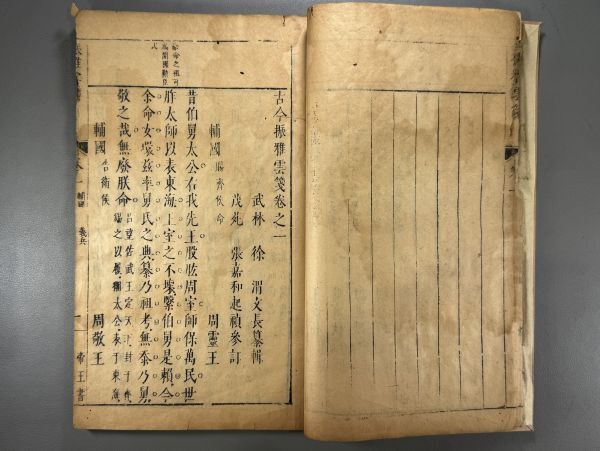 古今振雅雲箋卷之一
武林 徐渭文長纂輯
茂苑 張嘉和起禎參訂
輔國 賜齊侯命 周靈王
昔伯舅太公右我先王股肱周室師保萬民世
胙太師以表東海王室之不壞繄伯舅是賴今
余命女環茲率舅氏之典纂乃祖考無忝乃舅
敬之哉無廢朕命
呂望佐武王定天下封于齊
太公表于東海
輔國 告衛侯 周敬王
卷一
輔國
帝王書